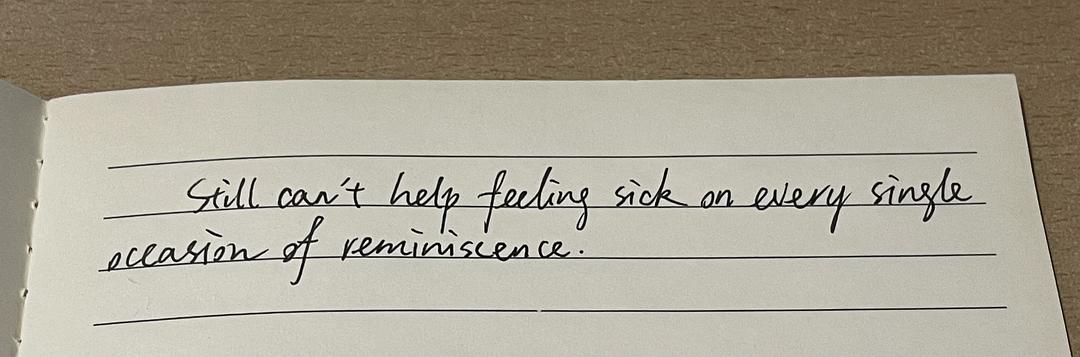 Still can't help feeling sick on every single
occasion of reminiscence.